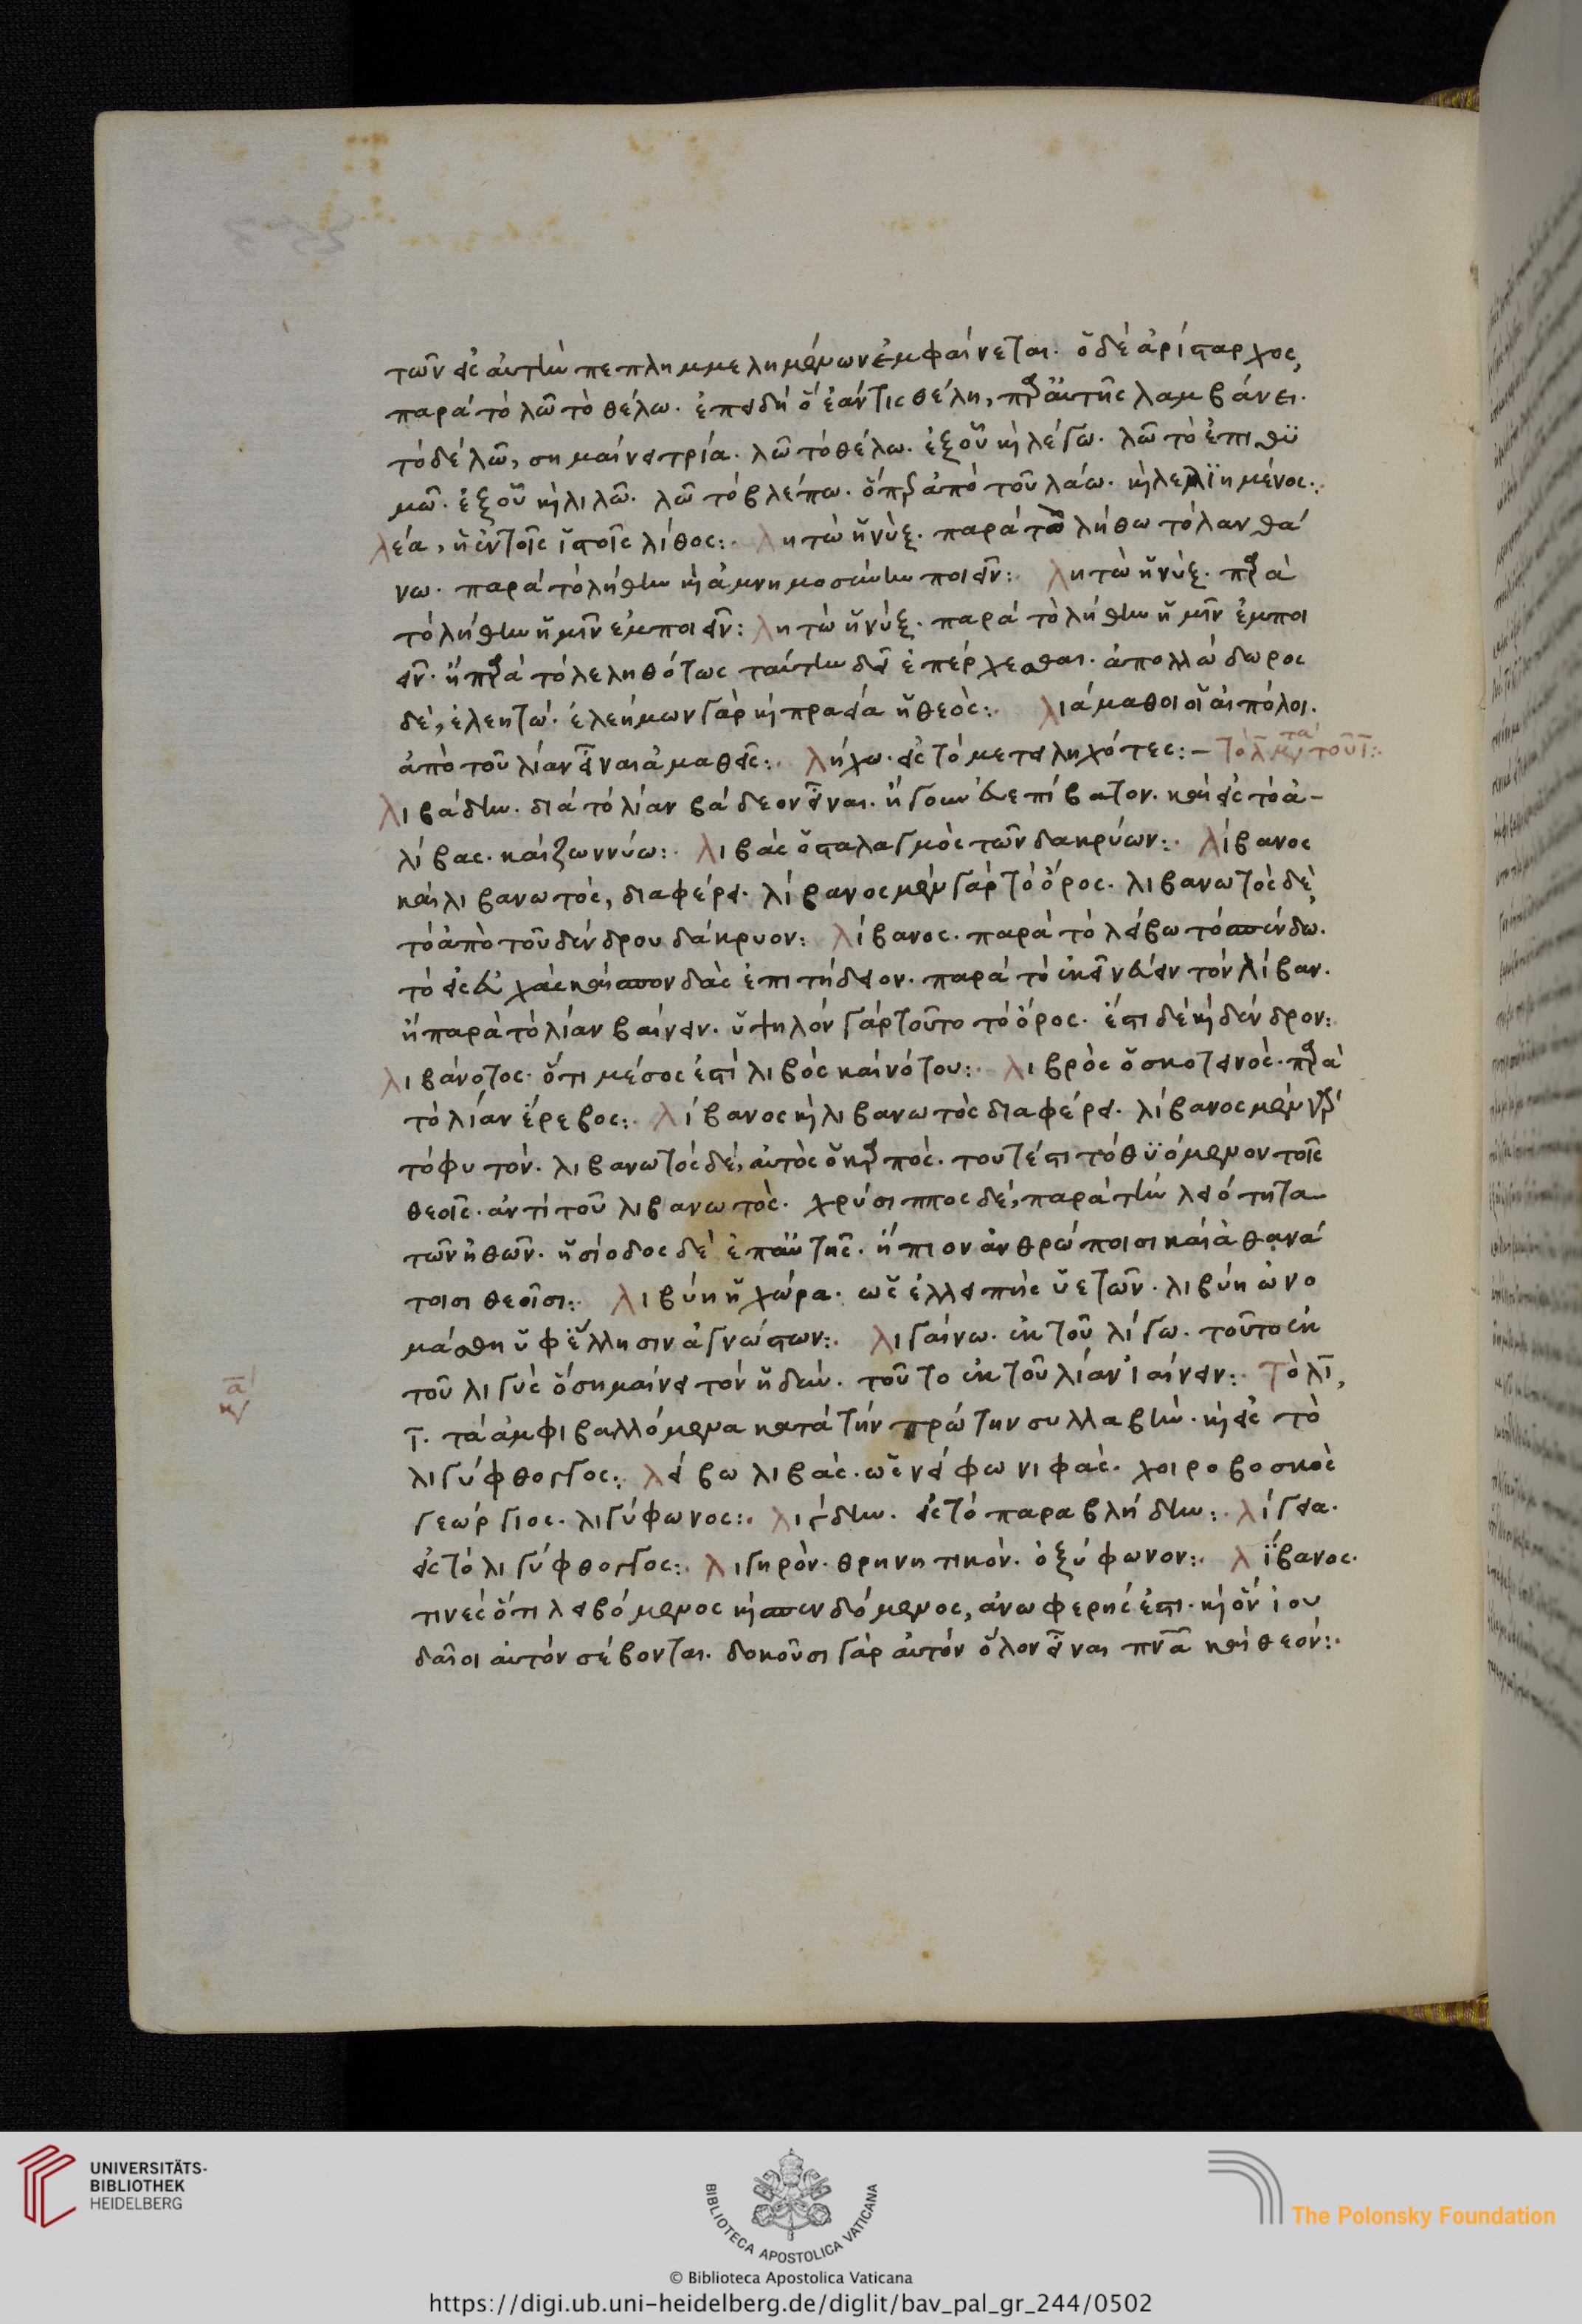 τῶν εἰς αὐτὴν πεπλημμελημένων ἐμφαίνεται. ὁ δὲ ἀρίσταρχος,
παρὰ τὸ λῶ τὸ θέλω. ἐπειδὴ ὃ ἐάν τις θέλη, παρ' αὐτῆς λαμβάνει.
τὸ δὲ λῶ, σημαίνει τρία. λῶ τὸ θέλω. ἐξ οὗ καὶ λέγω. λῶ τὸ ἐπιθυ
μῶ. ἐξ οὗ καὶ λιλῶ. λῶ τὸ βλέπω. ὅπερ ἀπὸ τοῦ λάω. καὶ λελϊημένος:.
λέα, ἡ ἐν τοῖς ἱστοῖς λίθος:. λητὼ ἡ νύξ. παρὰ τὸ λήθω τὸ λανθά
νω. παρὰ τὸ λήθην καὶ ἀμνημοσύνην ποιεῖν:. λητὼ ἡ νύξ. παρὰ
τὸ λήθην ἡμῖν ἐμποιεῖν: λητὼ ἡ νύξ. παρὰ τὸ λήθην ἡμῖν ἐμποι
εῖν. ἢ παρὰ τὸ λεληθότως ταύτην δεῖ ἐπέρχεσθαι. ἀπολλώδωρος
δὲ, ἐλεητώ. ἐλεήμων γὰρ καὶ πραεῖα ἡ θεός:. λιάμαθοι οἱ αἰπόλοι.
ἀπὸ τοῦ λίαν εἶναι ἀμαθεῖς:. λήχω. εἰς τὸ μετειληχότες:– τὸ λ μετὰ τοῦ ι:.
λιβάδην. διὰ τὸ λίαν βάδεον εἶναι. ἤγουν εὐεπίβατον. καὶ εἰς τὸ ἀ–
λίβας. καὶ ζωννύω:. λιβὰς ὁ σταλαγμὸς τῶν δακρύων:. λίβανος
καὶ λιβανωτός, διαφέρει. λίβανος μὲν γὰρ τὸ ὄρος. λιβανωτὸς δὲ,
τὸ ἀπὸ τοῦ δένδρου δάκρυον: λίβανος. παρὰ τὸ λείβω τὸ σπένδω.
τὸ εἰς εὐχὰς καὶ σπονδὰς ἐπιτήδειον. παρὰ τὸ ἐκεῖν εὐεῖν τὸν λίβαν.
ἢ παρὰ τὸ λίαν βαίνειν. ὑψηλὸν γὰρ τοῦτο τὸ ὄρος. ἔστι δὲ καὶ δένδρον:
λιβάνοτος. ὅτι μέσος ἐστὶ λιβὸς καὶ νότου:. λιβρὸς ὁ σκοτεινός. παρὰ
τὸ λίαν ἔρεβος:. λίβανος καὶ λιβανωτὸς διαφέρει. λίβανος μὲν γὰρ
τὸ φυτόν. λιβανωτὸς δὲ, αὐτὸς ὁ καρπός. τουτέστι τὸ θϋόμενον τοῖς
θεοῖς. ἀντὶ τοῦ λιβανωτός. χρύσιππος δὲ, παρὰ τὴν λειότητα
τῶν ἠθῶν. ἡσίοδος δὲ ἐπ' αὐτῆς. ἤπιον ἀνθρώποισι καὶ ἀθανά
τοισι θεοῖσι:. λιβύη ἡ χώρα. ὡς ἐλλειπὴς ὑετῶν. λιβύη ὠνο
μάσθη ὑφ' ἕλλησιν ἀγνώστων:. λιγαίνω. ἐκ τοῦ λίγω. τοῦτο ἐκ
τοῦ λιγὺς ὃ σημαίνει τὸν ἡδύν. τοῦτο ἐκ τοῦ λίαν ἰαίνειν:. Τὸ λι,
ι. τὰ ἀμφιβαλλόμενα κατὰ τὴν πρώτην συλλαβήν. καὶ εἰς τὸ
λιγύφθογγος:. λείβω λιβάς. ὡς νείφω νιφάς. χοιροβοσκὸς
γεώργιος. λιγύφωνος:. λίγδην. εἰς τὸ παραβλήδην:. λίγεια.
εἰς τὸ λιγύφθογγος:. λιγηρόν. θρηνητικόν. ὀξύφωνον:. λίβανος.
τινὲς ὅτι λειβόμενος καὶ σπενδόμενος, ἀνωφερής ἐστι. καὶ ὃν ἰου
δαῖοι αὐτὸν σέβονται. δοκοῦσι γὰρ αὐτὸν ὅλον εἶναι πνᾶ καὶ θεόν:.
UNIVERSITÄTS-
BIBLIOTHEK
HEIDELBERG
BIBLIOTECA APOSTOLICA VATICANA
The Polonsky Foundation
© Biblioteca Apostolica Vaticana
https://digi.ub.uni-heidelberg.de/diglit/bav_pal_gr_244/0502